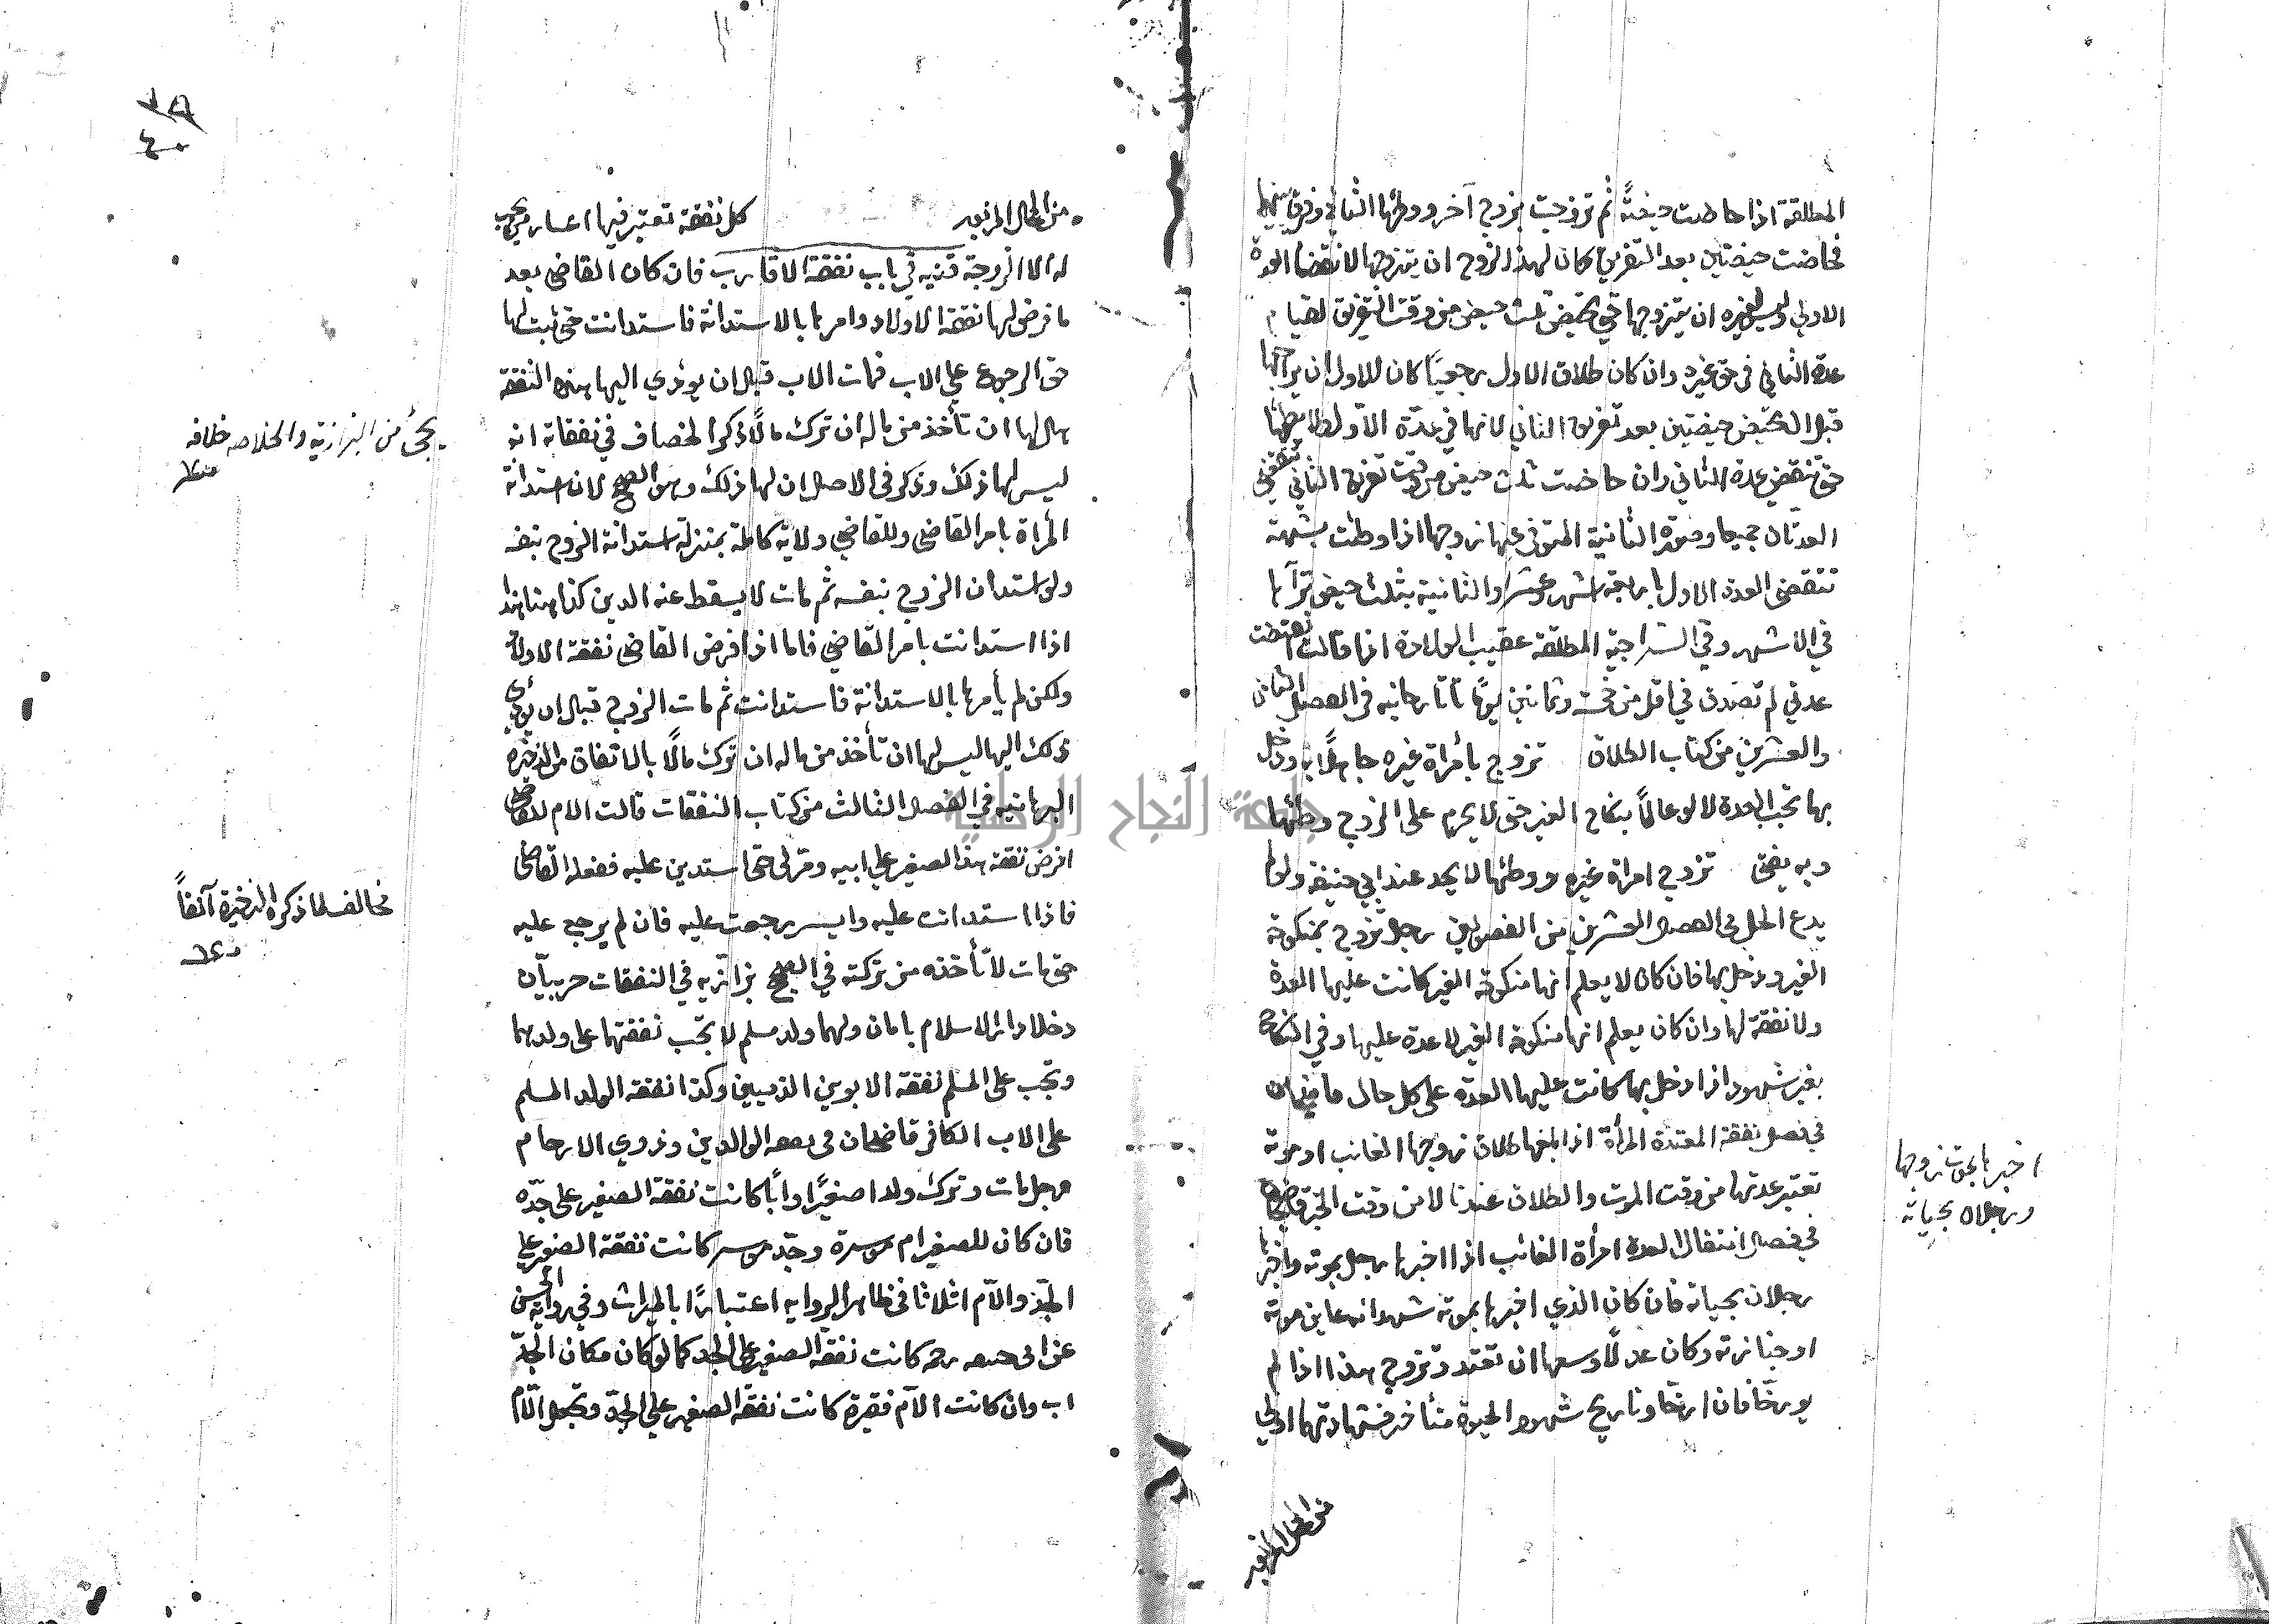 المطلقة اذا حاضت حيضة ثم تزوجت بزوج آخر ووطئها الثاني وفرق بينهما
فحاضت حيضتين بعد التفريق كان لهذا الزوج ان يتزوجها لانقضاء العدة
الاولى وليس لغيره ان يتزوجها حتى تحيض ثلث حيض من وقت التفريق لقيام
عدة الثاني في حق غيره وان كان طلاق الاول رجعيًا كان للاول ان يراجعها
قبل ان تحيض حيضتين بعد تفريق الثاني لانها في عدة الاول ولا يطئها
حتى تنقضي عدة الثاني وان حاضت ثلث حيض من وقت تفريق الثاني تنقضي
العدتان جميعا وصورة الثانية المتوفى عنها زوجها اذا وطئت بشبهة
تنقضي العدة الاولى باربعة اشهر وعشر والثانية بثلث حيض تراها
في الاشهر وفي السراجية المطلقة عقيب الولادة اذا قالت انقضت
عدتي لم تصدق في اقل من خمسة وثمانين يومًا تاتارخانيه في الفصل الثامن
والعشرين من كتاب الطلاق تزوج بامرأة غيره جاهلًا به ودخل
بها تجب العدة لا لو عالمًا بنكاح الغير حتى لا يحرم على الزوج وطئها
وبه يفتى تزوج امراة غيره ووطئها لا يحد عند ابي حنيفه ولو لم
يدع الحل في الفصل العشرين من الفصولين رجل تزوج بمنكوحة
الغير ودخل بها فان كان لا يعلم انها منكوحة الغير كانت عليها العدة
ولا نفقة لها وان كان يعلم انها منكوحة الغير لا عدة عليها وفي النكاح
بغير شهود اذا دخل بها كانت عليها العدة على كل حال قاضيخان
في فصل نفقة المعتدة المرأة اذا بلغها طلاق زوجها الغائب او موته
تعتبر عدتها من وقت الموت والطلاق عندنا لا من وقت الخبر قاضيخان
في فصل انتقال العدة امرأة الغائب اذا اخبرها رجل بموته واخبرها
رجلان بحياته فان كان الذي اخبرها بموته شهد انه عاين موته
او جنازته وكان عدلًا وسعها ان تعتد وتزوج هذا اذا لم
يورخا فان ارخا وتاريخ شهود الحيوة متأخر فشهادتهما اولى
من المحل المزبور
اخبرها بموت زوجها
ورجلان بحياته
من المحل المزبور كل نفقة تعتبر فيها اعسار من يجب
له الا الزوجة قنيه في باب نفقة الاقارب فان كان القاضي بعد
ما فرض لها نفقة الاولاد وامرها بالاستدانة فاستدانت حتى ثبت لها
حق الرجوع على الاب فمات الاب قبل ان يؤدي اليها هذه النفقة
هل لها ان تأخذ من ماله ان ترك مالًا ذكر الخصاف في نفقاته انه
ليس لها ذلك وذكر في الاصل ان لها ذلك وهو الصحيح لان استدانة
المرأة بامر القاضي وللقاضي ولاية كاملة بمنزلة استدانة الزوج بنفسه
ولو استدان الزوج بنفسه ثم مات لا يسقط عنه الدين كذا هنا هذا
اذا استدانت بامر القاضي فاما اذا فرض القاضي نفقة الاولاد
ولكن لم يأمرها بالاستدانة فاستدانت ثم مات الزوج قبل ان يؤدي
ذلك اليها ليس لها ان تأخذ من ماله ان ترك مالًا بالاتفاق من الذخيرة
البرهانيه في الفصل الثالث من كتاب النفقات قالت الام للقاضي
افرض نفقة هذا الصغير على ابيه ومرلي حتى استدين عليه ففعل القاضي
فاذا استدانت عليه وايسر رجعت عليه فان لم يرجع عليه
حتى مات لا تأخذه من تركته في الصحيح بزازيه في النفقات حربيان
دخلا دار الاسلام بامان ولهما ولد مسلم لا تجب نفقتهما على ولدهما
وتجب على المسلم نفقة الابوين الذميين وكذا نفقة الولد المسلم
على الاب الكافر قاضيخان في نفقة الوالدين وذوي الارحام
رجل مات وترك ولدا صغيرًا وأبًا كانت نفقة الصغير على جده
فان كان للصغير ام موسرة وجد موسر كانت نفقة الصغير على
الجد والام اثلاثا في ظاهر الروايه اعتبارًا بالميراث وفي رواية الحسن
عن ابي حنيفه رحمه كانت نفقة الصغير على الجد كما لو كان مكان الجد
اب وان كانت الام فقيرة كانت نفقة الصغير على الجد وتجعل الام
يجئ من البزازية والخلاصه خلافه
مخالف لما ذكره الذخيرة آنفاً
٤٠
جامعة النجاح الوطنية